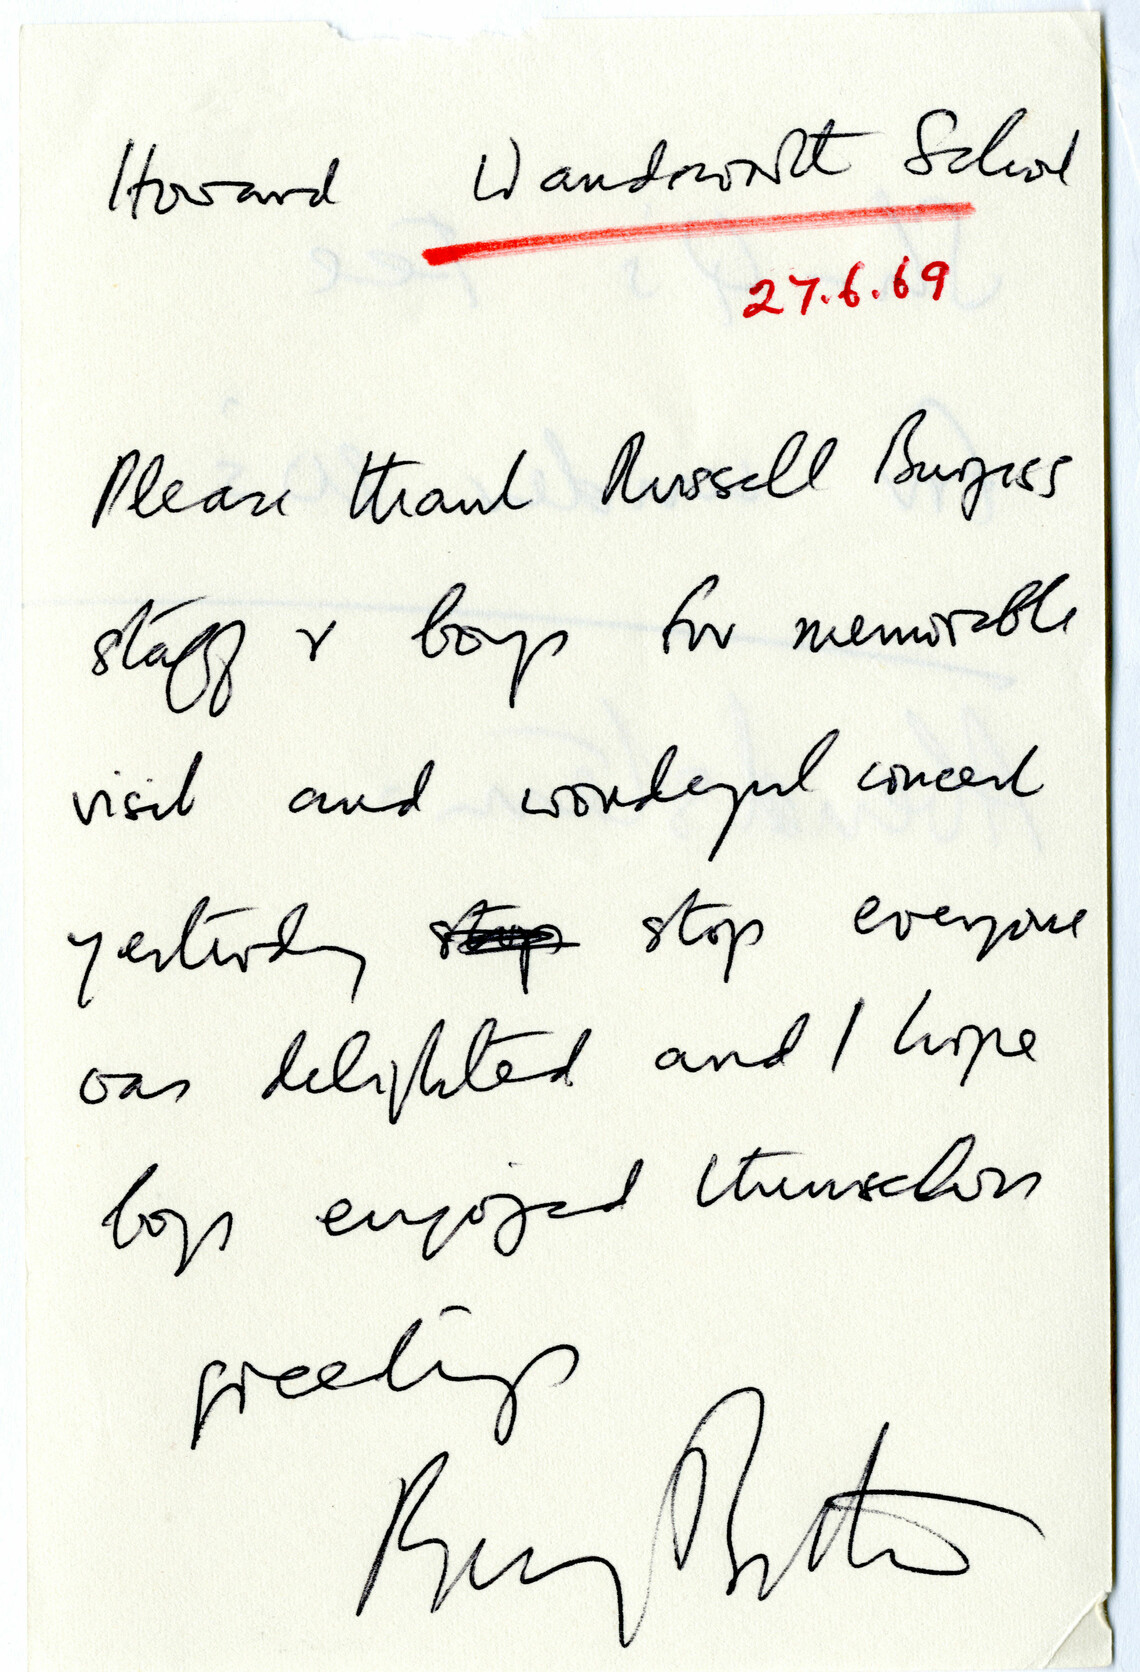 Howard Wandsworth School
27.6.69
Please thank Russell Burgess
staff & boys for memorable
visit and wonderful concert
yesterday stop stop everyone
was delighted and I hope
boys enjoyed themselves
greetings
Benjamin Britten